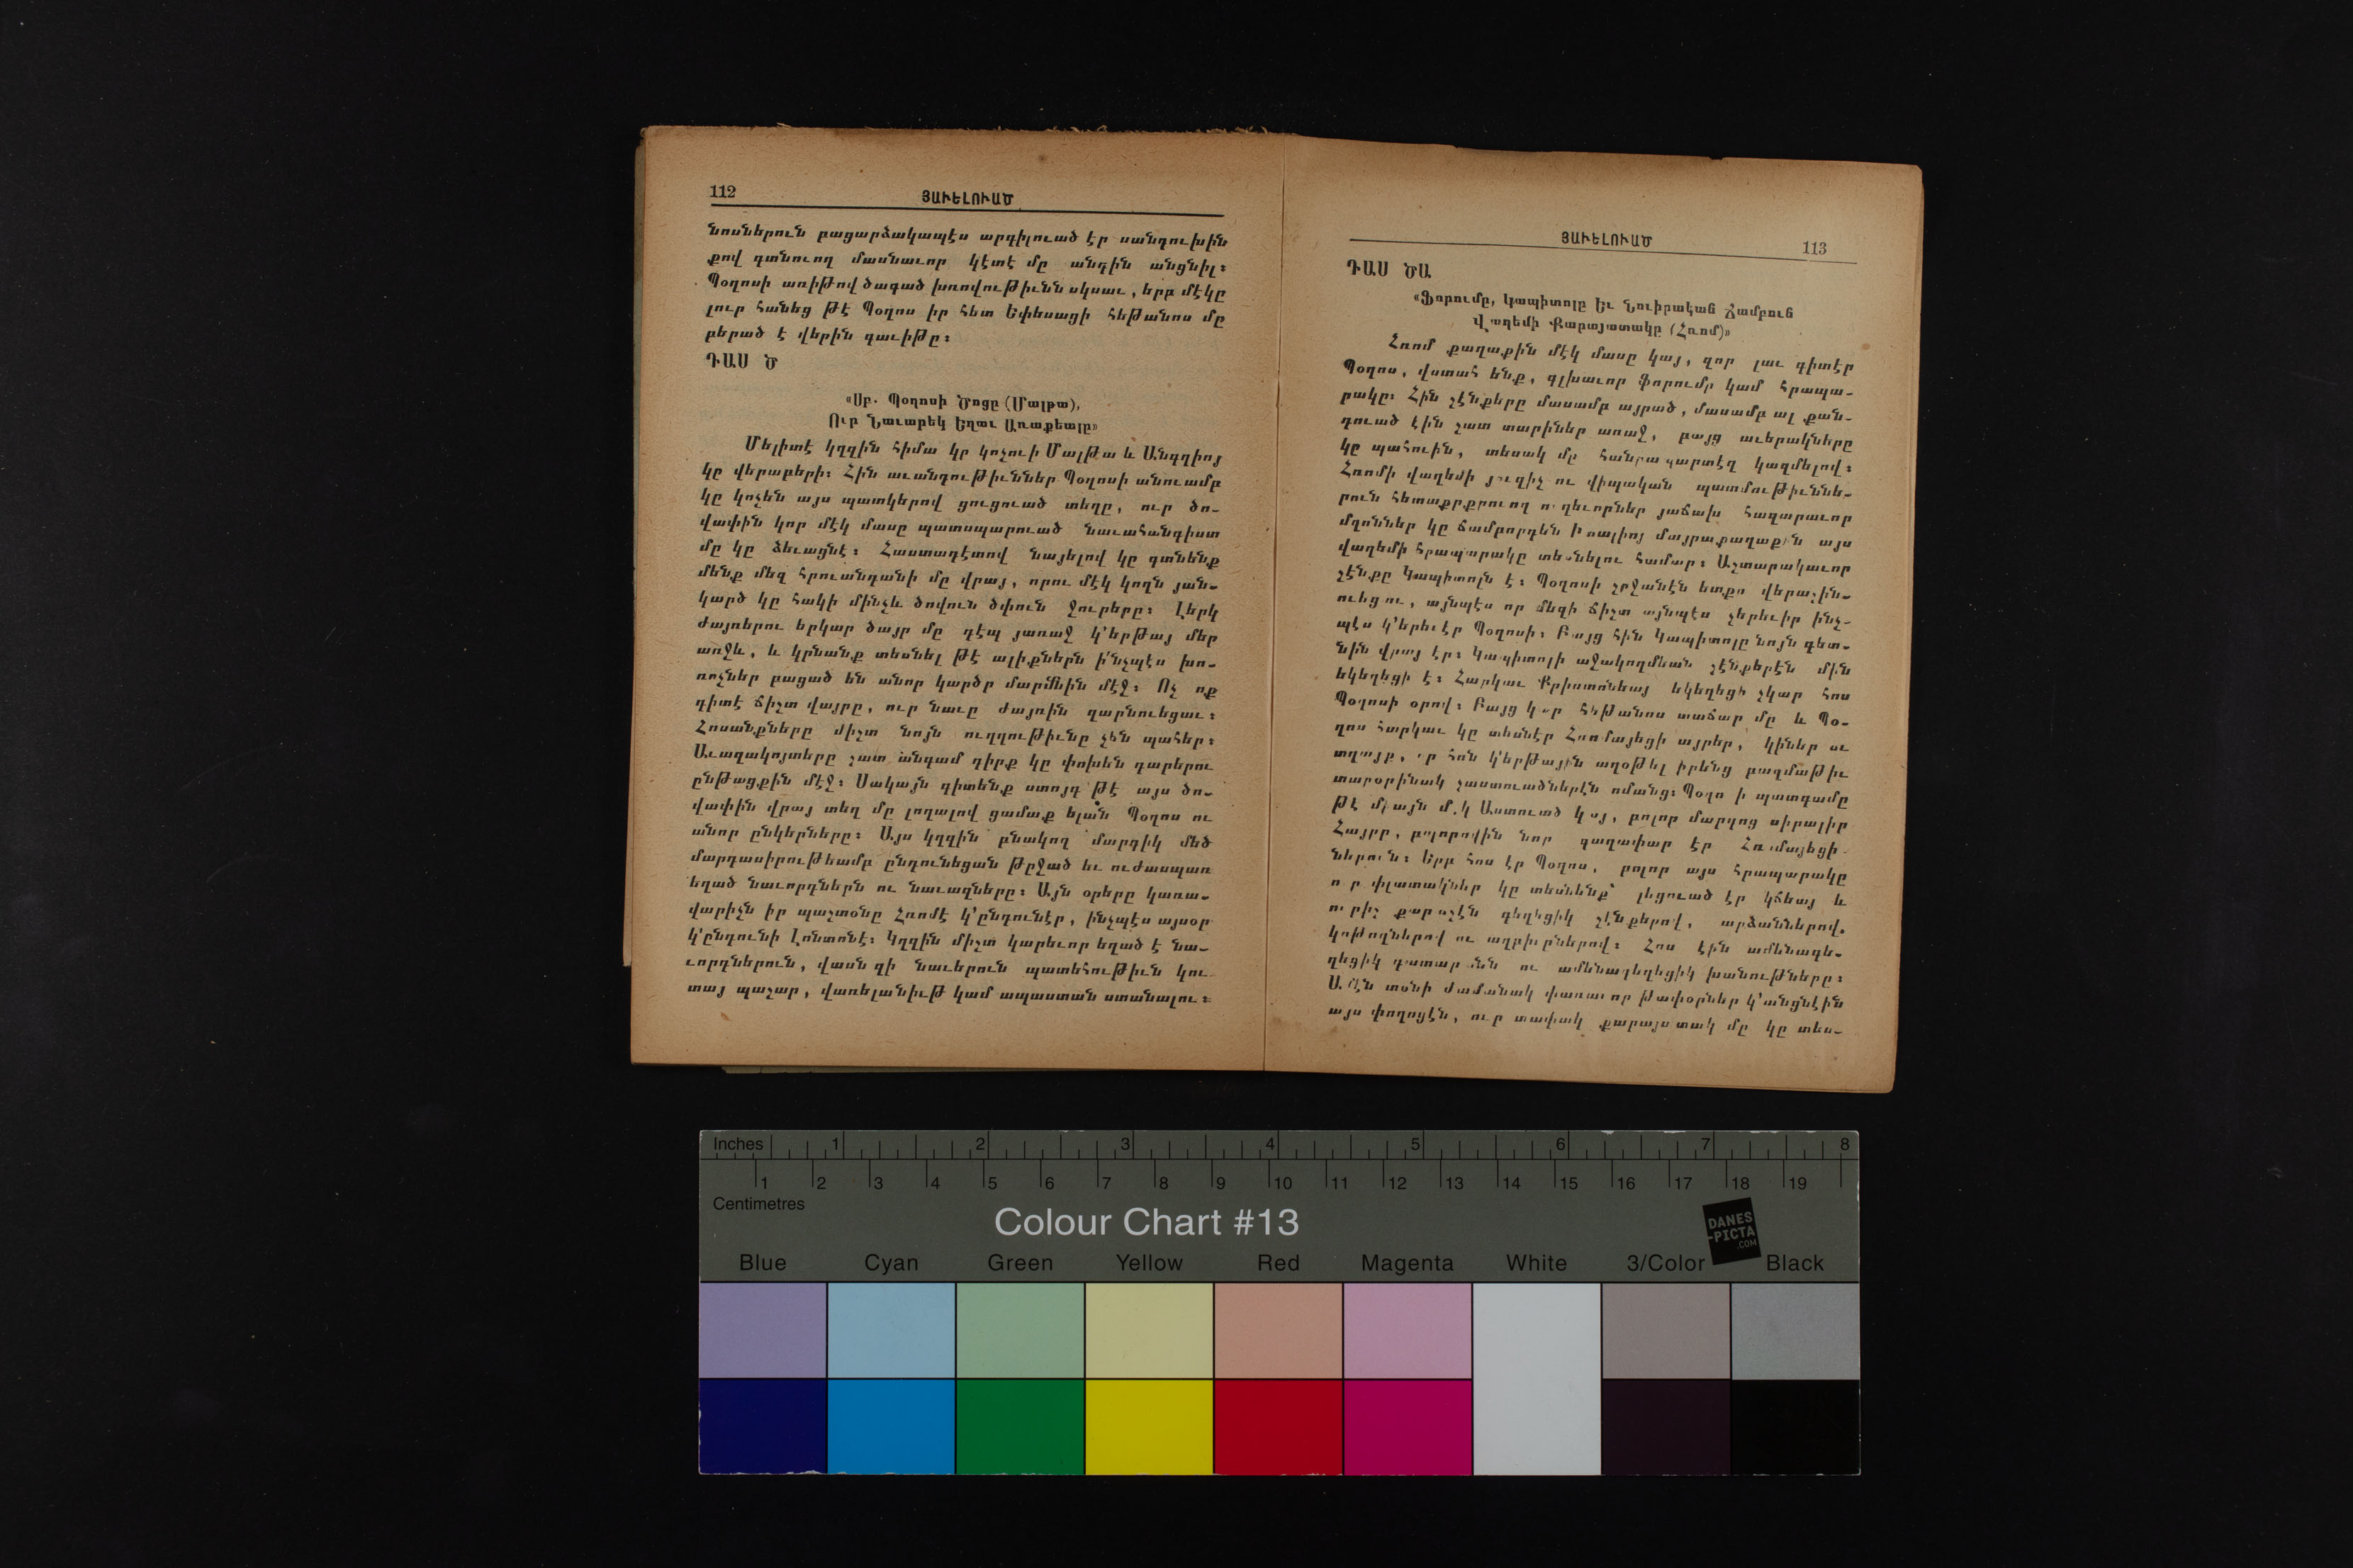 112
ՅԱՒԵԼՈՒԱԾ
նոսներուն բացարձակապէս արգիլուած էր սանդուխին
քով գտնուող մասնաւոր կէտէ մը անդին անցնիլ։
Պօղոսի առիթով ծագած խռովութիւնն սկսաւ, երբ մէկը
լուր հանեց թէ Պօղոս իր հետ Եփեսացի հեթանոս մը
բերած է վերին գաւիթը։
ԴԱՍ Ծ
«Սբ. Պօղոսի Ծոցը (Մալթա),
Ուր Նաւաբեկ Եղաւ Առաքեալը»
Մելիտէ կղզին հիմա կը կոչուի Մալթա և Անգղիոյ
կը վերաբերի։ Հին աւանդութիւններ Պօղոսի անուամբ
կը կոչեն այս պատկերով ցուցուած տեղը, ուր ծո-
վափին կոր մէկ մասը պատսպարուած նաւահանգիստ
մը կը ձեւացնէ։ Հաստադէտով նայելով կը գտնենք
մենք մեզ հրուանդանի մը վրայ, որու մէկ կողն յան-
կարծ կը հակի մինչև ծովուն ծփուն ջուրերը։ Լերկ
ժայռերու երկար ծայր մը դէպ յառաջ կ՚երթայ մեր
առջև, և կրնանք տեսնել թէ ալիքներն ի՛նչպէս խո-
ռոչներ բացած են անոր կարծր մարմնին մէջ։ Ոչ ոք
գիտէ ճիշտ վայրը, ուր նաւը ժայռին զարնուեցաւ։
Հոսանքները միշտ նոյն ուղղութիւնը չեն պահեր։
Աւազակոյտերը շատ անգամ դիրք կը փոխեն դարերու
ընթացքին մէջ։ Սակայն գիտենք ստոյգ թէ այս ծո-
վափին վրայ տեղ մը լողալով ցամաք ելան Պօղոս ու
անոր ընկերները։ Այս կղզին բնակող մարդիկ մեծ
մարդասիրութեամբ ընդունեցան թրջած եւ ուժասպառ
եղած նաւորդներն ու նաւազները։ Այն օրերը կառա-
վարիչն իր պաշտօնը Հռոմէ կ՚ընդունէր, ինչպէս այսօր
կ՚ընդունի Լոնտոնէ։ Կղզին միշտ կարեւոր եղած է նա-
ւորդներուն, վասն զի նաւերուն պատեհութիւն կու
տայ պաշար, վառելանիւթ կամ ապաստան ստանալու։
ՅԱՒԵԼՈՒԱԾ
113
ԴԱՍ ԾԱ
«Ֆորումը, Կապիտոլը Եւ Նուիրական Ճամբուն
Վաղեմի Քարայատակը (Հռոմ)»
Հռոմ քաղաքին մէկ մասը կայ, զոր լաւ գիտէր
Պօղոս, վստահ ենք, գլխաւոր ֆորումը կամ հրապա-
րակը։ Հին շէնքերը մասամբ այրած, մասամբ ալ քան-
դուած էին շատ տարիներ առաջ, բայց աւերակները
կը պահուին, տեսակ մը հանրապարտէզ կազմելով։
Հռոմի վաղեմի յուզիչ ու վիպական պատմութիւննե-
րուն հետաքրքրուող ուղեւորներ յաճախ հազարաւոր
մղոններ կը ճամբորդեն Իտալիոյ մայրաքաղաքին այս
վաղեմի հրապարակը տեսնելու համար։ Աշտարակաւոր
շէնքը Կապիտոլն է։ Պօղոսի շրջանէն ետքը վերաշին-
ուեցաւ, այնպէս որ մեզի ճիշտ այնպէս չերեւիր ինչ-
պէս կ՚երեւէր Պօղոսի։ Բայց հին Կապիտոլը նոյն գետ-
նին վրայ էր։ Կապիտոլի աջակողմեան շէնքերէն մին
եկեղեցի է։ Հարկաւ Քրիստոնեայ եկեղեցի չկար հոս
Պօղոսի օրով։ Բայց կար հեթանոս տաճար մը և Պօ-
ղոս հարկաւ կը տեսնէր Հռոմայեցի այրեր, կիներ ու
տղայք, որ հոն կ՚երթային աղօթել իրենց բազմաթիւ
տարօրինակ չաստուածներէն ոմանց։ Պօղոսի պատգամը
թէ միայն մէկ Աստուած կայ, բոլոր մարդոց սիրալիր
Հայրը, բոլորովին նոր գաղափար էր Հռոմայեցի
ներուն։ Երբ հոս էր Պօղոս, բոլոր այս հրապարակը
ուր փլատակներ կը տեսնենք՝ լեցուած էր կճեայ և
ուրիշ քարաշէն գեղեցիկ շէնքերով, արձաններով,
կոթողներով ու աղբիւրներով։ Հոս էին ամենագե-
ղեցիկ դատարանն ու ամենագեղեցիկ խանութները։
Ամէն տօնի ժամանակ փառաւոր թափօրներ կ՚անցնէին
այս փողոցէն, ուր տափակ քարայատակ մը կը տես-
Inches 1 2 3 4 5 6 7 8
1 2 3 4 5 6 7 8 9 10 11 12 13 14 15 16 17 18 19
Centimetres
Colour Chart #13
DANES
-PICTA
.COM
Blue Cyan Green Yellow Red Magenta White 3/Color Black